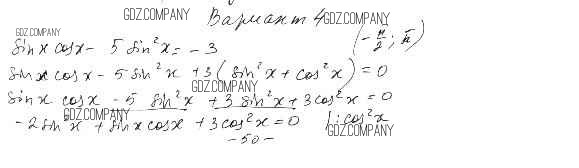 GDZ.COMPANY Вариант 4 GDZ.COMPANY
GDZ.COMPANY (-π/2; π)
sin x cos x - 5 sin²x = -3
sin x cos x - 5 sin²x + 3(sin²x + cos²x) = 0
GDZ.COMPANY
sin x cos x - 5 sin²x + 3 sin²x + 3cos²x = 0
GDZ.COMPANY
-2 sin²x + sin x cos x + 3 cos²x = 0 | : cos²x
GDZ.COMPANY
- 50 -